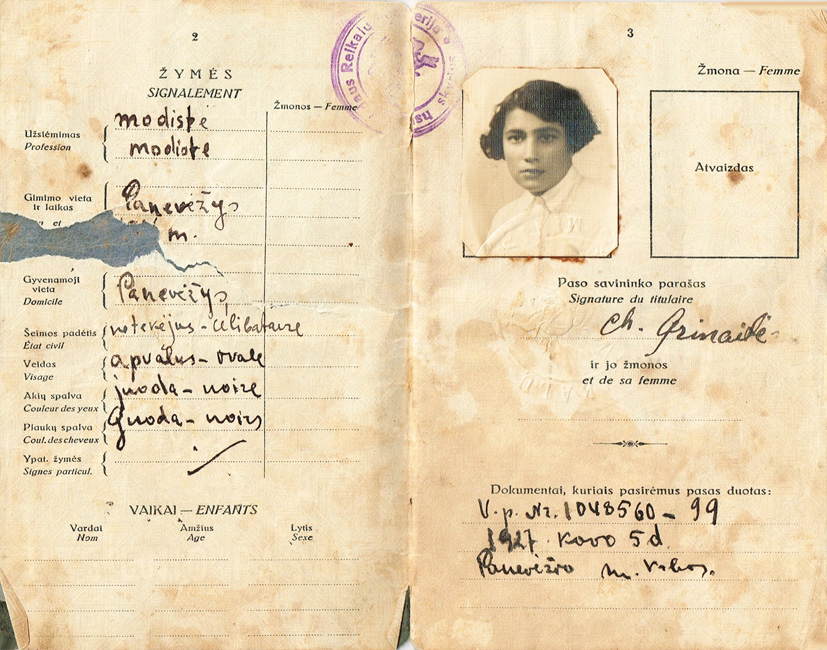 2
ŽYMĖS
SIGNALEMENT
Žmonos — Femme
Užsiėmimas
Profession
modistė
modiste
Gimimo vieta
ir laikas
et
Panevėžys
m.
Gyvenamoji
vieta
Domicile
Panevėžys
Šeimos padėtis
État civil
netekėjus - célibataire
Veidas
Visage
apvalus - ovale
Akių spalva
Couleur des yeux
juoda - noire
Plaukų spalva
Coul. des cheveux
juoda - noirs
Ypat. žymės
Signes particul.
VAIKAI — ENFANTS
Vardai
Nom
Amžius
Age
Lytis
Sexe
Reikalų
3
Žmona — Femme
Atvaizdas
Paso savininko parašas
Signature du titulaire
Ch. Grinaitė
ir jo žmonos
et de sa femme
Dokumentai, kuriais pasirėmus pasas duotas:
V. p. Nr. 1048560 - 99
1927 kovo 5 d.
Panevėžio m.